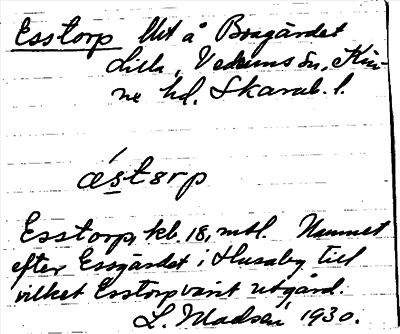 Esstorp Utt å Bragärdet
lilla, Vedums sn, Kin-
ne hd. Skarab. l.
ástɵrp
Esstorp, kb. 18, mtl. Namnet
efter Essgärdet i Husaby till
vilket Esstorp varit utgård.
L. Madsén 1930.